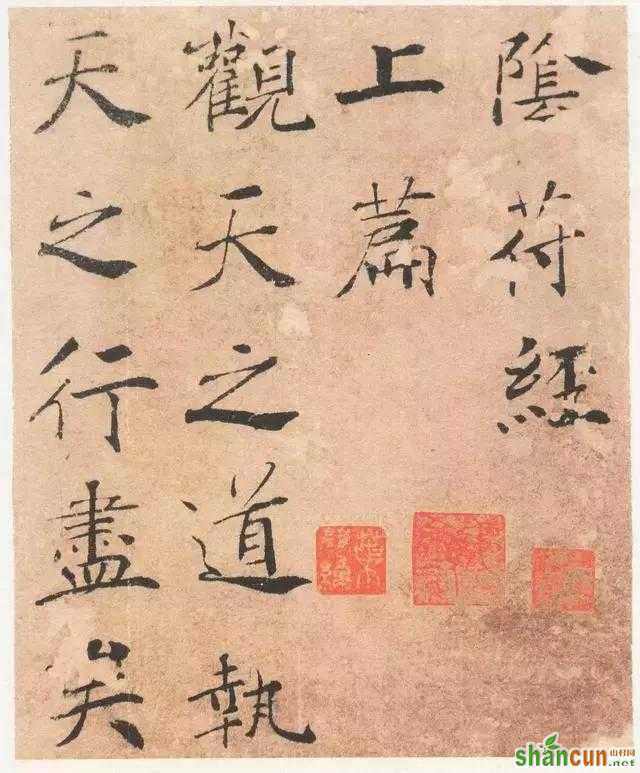 陰符經
上篇
觀天之道執
天之行盡矣
shancun
山村网
.net